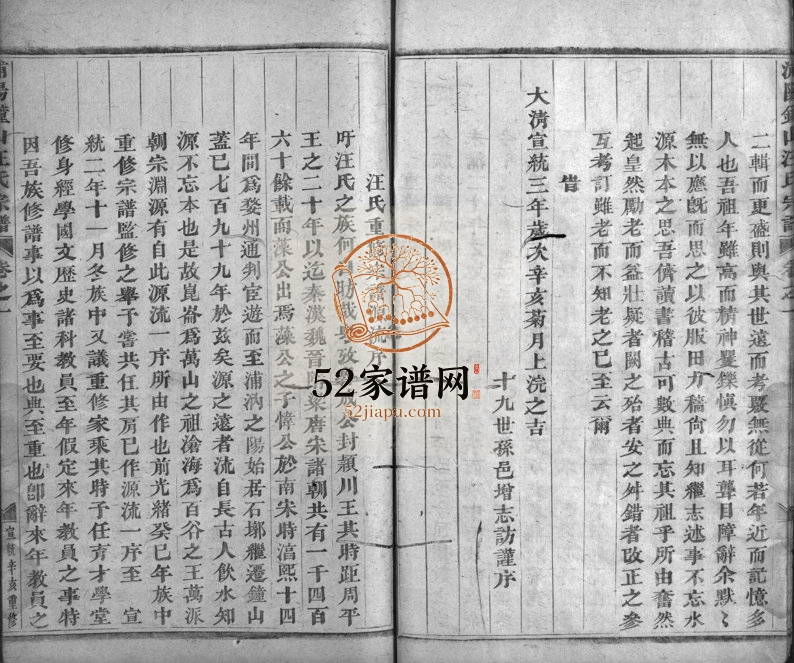 二輯而更葢則與其世遠而考覈無從何若年近而記憶多
人也吾祖年雖高而精神矍鑠愼勿以耳聾目障辭余默〻
無以應旣而思之以彼服田力穡尙且知繼志述事不忘水
源木本之思吾儕讀書稽古可數典而忘其祖乎所由奮然
起皇然勵老而益壯疑者闕之殆者安之舛錯者改正之參
互考訂雖老而不知老之已至云爾
旹
大淸宣統三年歲次辛亥菊月上浣之吉
十九世孫邑增志訪謹序
浦陽鐘山汪氏宗譜
卷之一
汪氏重修
流序
吁汪氏之族何
昉哉
成公封潁川王其時距周平
王之二十年以迄秦漢魏晉
梁唐宋諸朝共有一千四百
六十餘載而藻公出焉藻公之子愇公於南宋時湻熙十四
年間爲婺州通判宦遊而至浦汭之陽始居石塘繼遷鐘山
蓋已七百九十九年於茲矣源之遠者流自長古人飮水知
源不忘本也是故崑崙爲萬山之祖滄海爲百谷之王萬派
朝宗淵源有自此源流一序所由作也前光緒癸巳年族中
重修宗譜監修之舉予嘗共任其肩已作源流一序至　宣
統二年十一月冬族中又議重修家乘其時予任育才學堂
修身經學國文歷史諸科教員至年假定來年教員之事特
因吾族修譜事以爲事至要也典至重也卽辭來年教員之
宣統辛亥重修
52家谱网
52jiapu.com